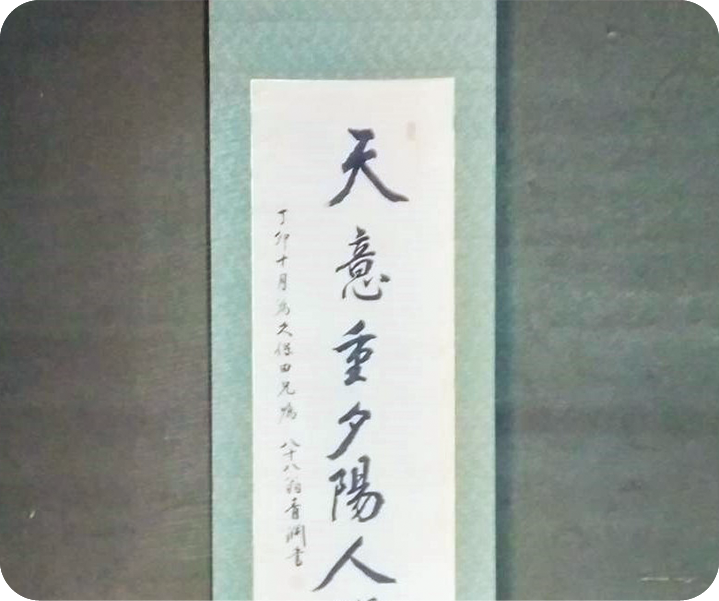 天意重夕陽人
丁卯十月為久保田兄嘱 八十八翁青淵書